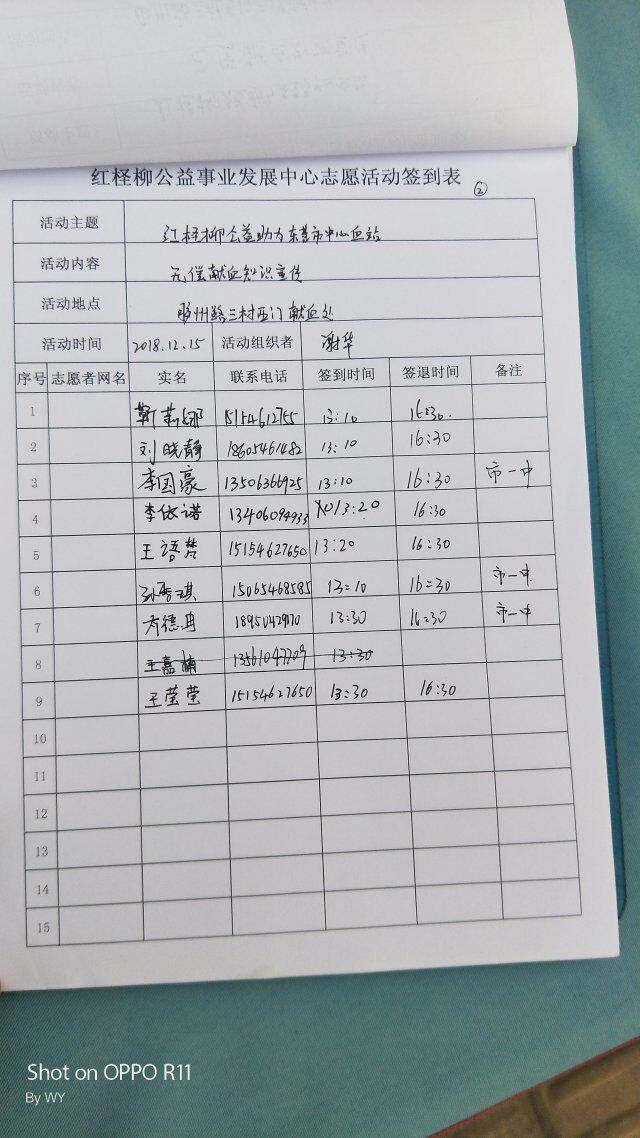 红柽柳公益事业发展中心志愿活动签到表 ②
活动主题 红柽柳公益助力东营市中心血站
活动内容 无偿献血知识宣传
活动地点 胶州路三村西门献血处
活动时间 2018.12.15 活动组织者 谢华
序号 志愿者网名 实名 联系电话 签到时间 签退时间 备注
1 靳莉娜 15154612755 13:10 16:30.
2 刘晓静 18605461482 13:10 16:30
3 李国豪 13506366925 13:10 16:30 市一中
4 李依诺 13406094933 13:20 16:30
5 王语梦 15154627650 13:20 16:30
6 孙 琪 15065468585 13:10 16:30 市一中
7 德冉 1895042970 13:30 16:30 市一中
8 王嘉楠 13561047709 13:30
9 王莹莹 15154627650 13:30 16:30
10
11
12
13
14
15
Shot on OPPO R11
By WY